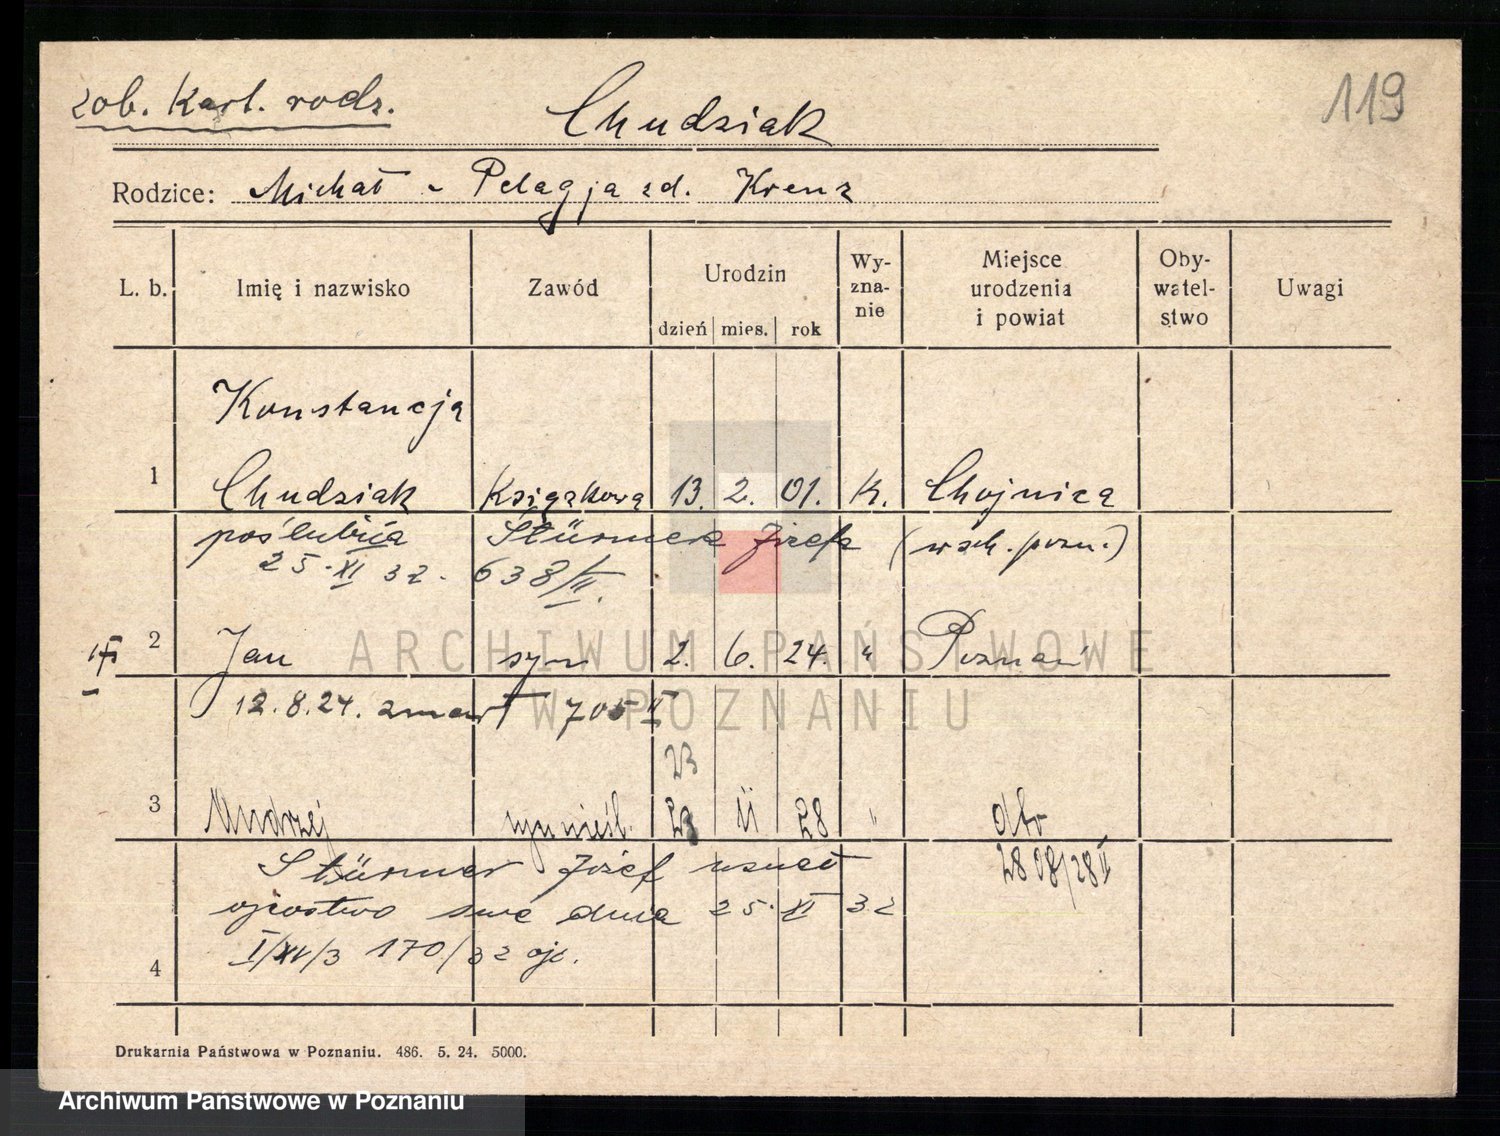 zob. Kart. rodz.
Chudziak
119
Rodzice: Michał - Pelagja zd. Krenz
L. b. Imię i nazwisko Zawód Urodzin dzień mies. rok Wy-zna-nie Miejsce urodzenia i powiat Oby-watel-stwo Uwagi
Konstancja
1 Chudziak Książkowa 13. 2. 01. k. Chojnica
poślubiła Stürmer Józefa (wsch. pozn.)
25. XI 32. 638/II.
2 Jan syn 2. 6. 24. " Poznań
12.8.24. zmarł 705 II
23
3 Andrzej syn nieśl. 23 11 28 " dto
2808/28 II
Stürmer Józef uznał
ojcostwo swe dnia 25. XI 32
I/XV/3 170/32 ojc.
4
Drukarnia Państwowa w Poznaniu. 486. 5. 24. 5000.
ARCHIWUM PAŃSTWOWE
W POZNANIU
Archiwum Państwowe w Poznaniu